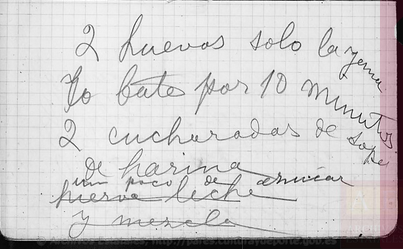 2 huevos solo la yema
lo bate por 10 minutos
2 cucharadas de sopa
de harina
un poco de azucar
hierve leche
y mezcla